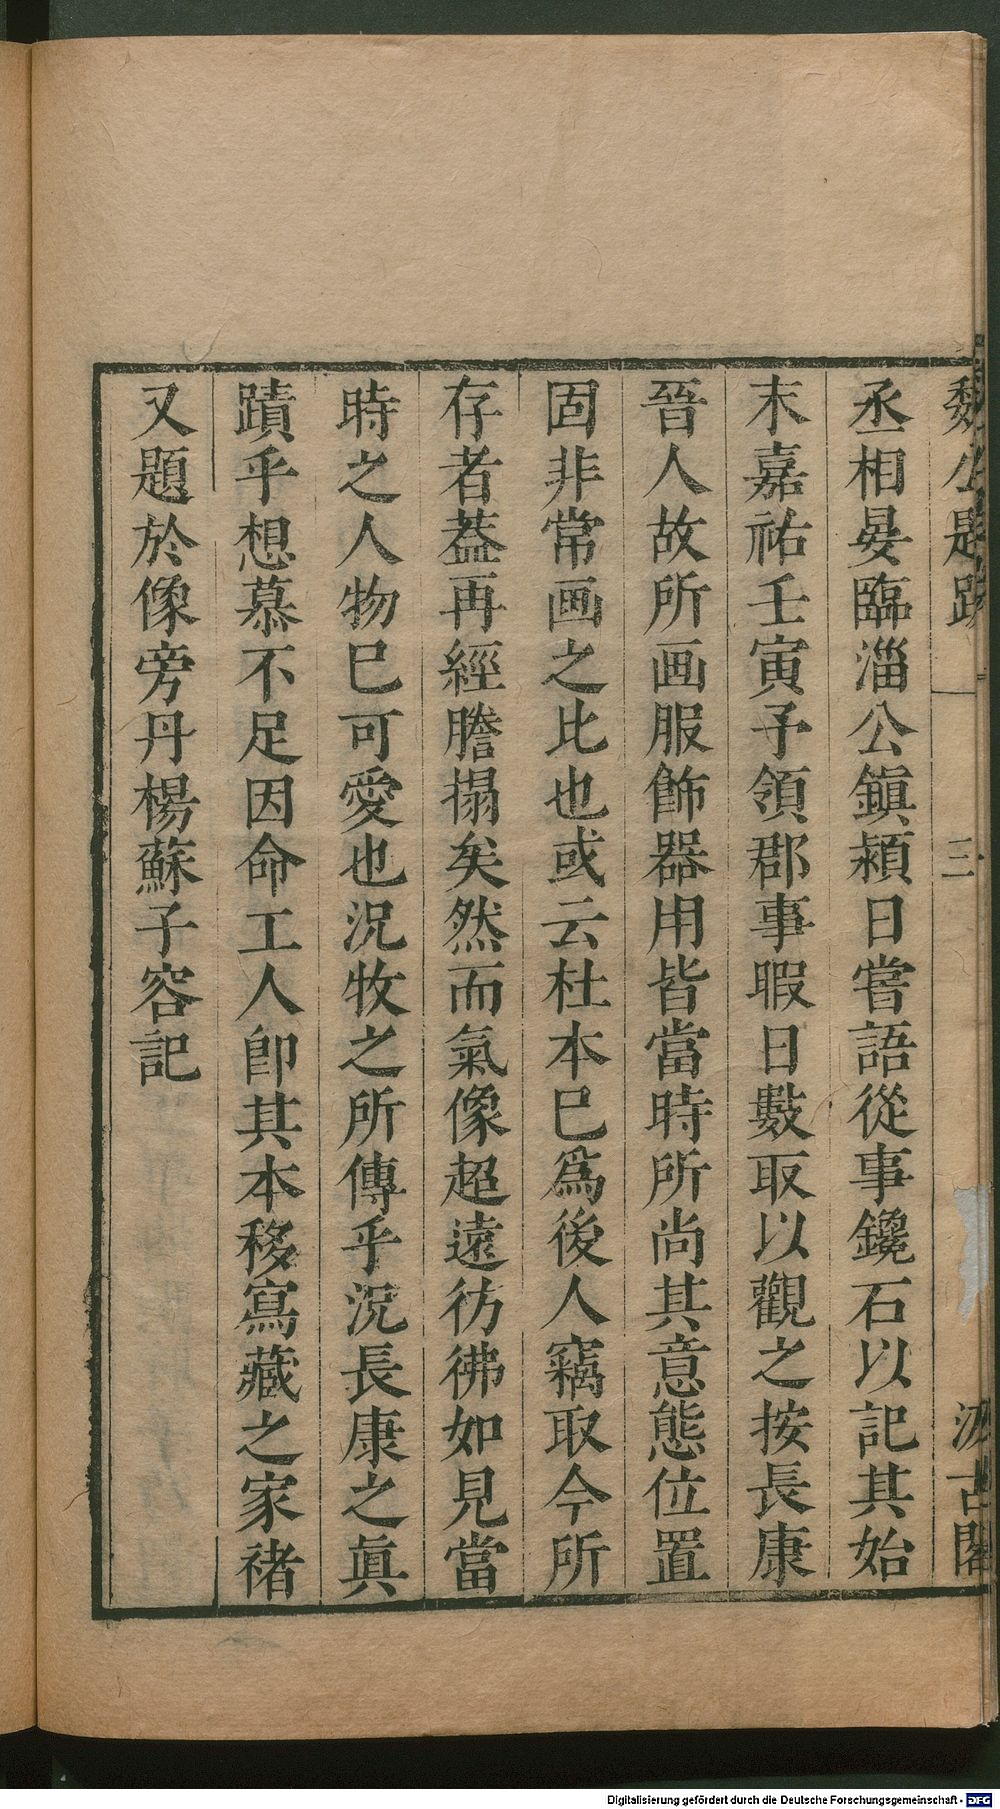 魏公題跋 三 汲古閣
丞相晏臨淄公鎮潁日嘗語從事鑱石以記其始
末嘉祐壬寅予領郡事暇日數取以觀之按長康
晉人故所画服飾器用皆當時所尚其意態位置
固非常画之比也或云杜本已爲後人竊取今所
存者葢再經謄搨矣然而氣像超遠彷彿如見當
時之人物已可愛也況牧之所傳乎況長康之眞
蹟乎想慕不足因命工人卽其本移寫藏之家褚
又題於像旁丹楊蘇子容記
Digitalisierung gefördert durch die Deutsche Forschungsgemeinschaft - DFG